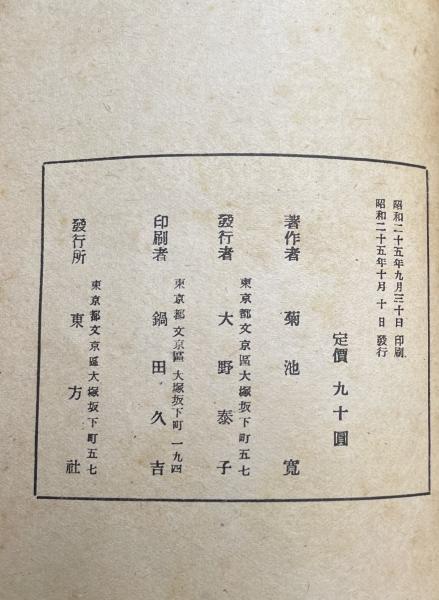 昭和二十五年九月三十日 印刷
昭和二十五年十月十日 發行
定價 九十圓
著作者 菊池寬
東京都文京區大塚坂下町五七
發行者 大野泰子
東京都文京區大塚坂下町一九四
印刷者 鍋田久吉
東京都文京區大塚坂下町五七
發行所 東方社